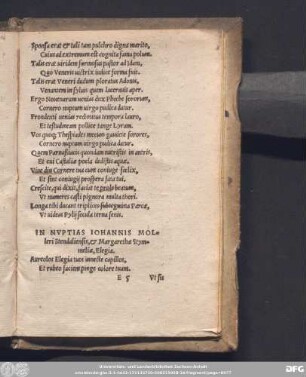 Sponsa erat & tali tam pulchro digna marito,
Cuius ad extremum est cognita fama polum.
Talis erat viridem formosus pastor ad Idam,
Quo Veneris victrix iudice forma fuit.
Talis erat Veneri dudum ploratus Adonis,
Venantem in syluis quem lacerauit aper.
Ergo Nouenarum venias dux Phœbe sororum,
Cernere nuptum virgo pudica datur.
Frondenti venias redimitus tempora lauro,
Et testudineam pollice tange Lyram.
Vos quoque Thespiades mecum gaudete sorores,
Cernere nuptum virgo pudica datur.
Quem Parnassiacis quondam nutristis in antris,
Et cui Castaliæ pocla dedistis aquæ.
Viue diu Cernere tua cum coniuge fœlix,
Et sint coniugii prospera fata tui.
Crescite, qui dixit, faciat te prole beatum,
Vt numeres casti pignora multa thori.
Longa tibi ducant triplices subtegmina Parcæ,
Vt videas Pylii secula terna senis.
IN NVPTIAS IOHANNIS MOL-
leri Stendaliensis, & Margarethæ
meliæ, Elegia.
Aureolos Elegia tuos innecte capillos,
Et rubro faciem pinge colore tuam.
E 5 Vt sis